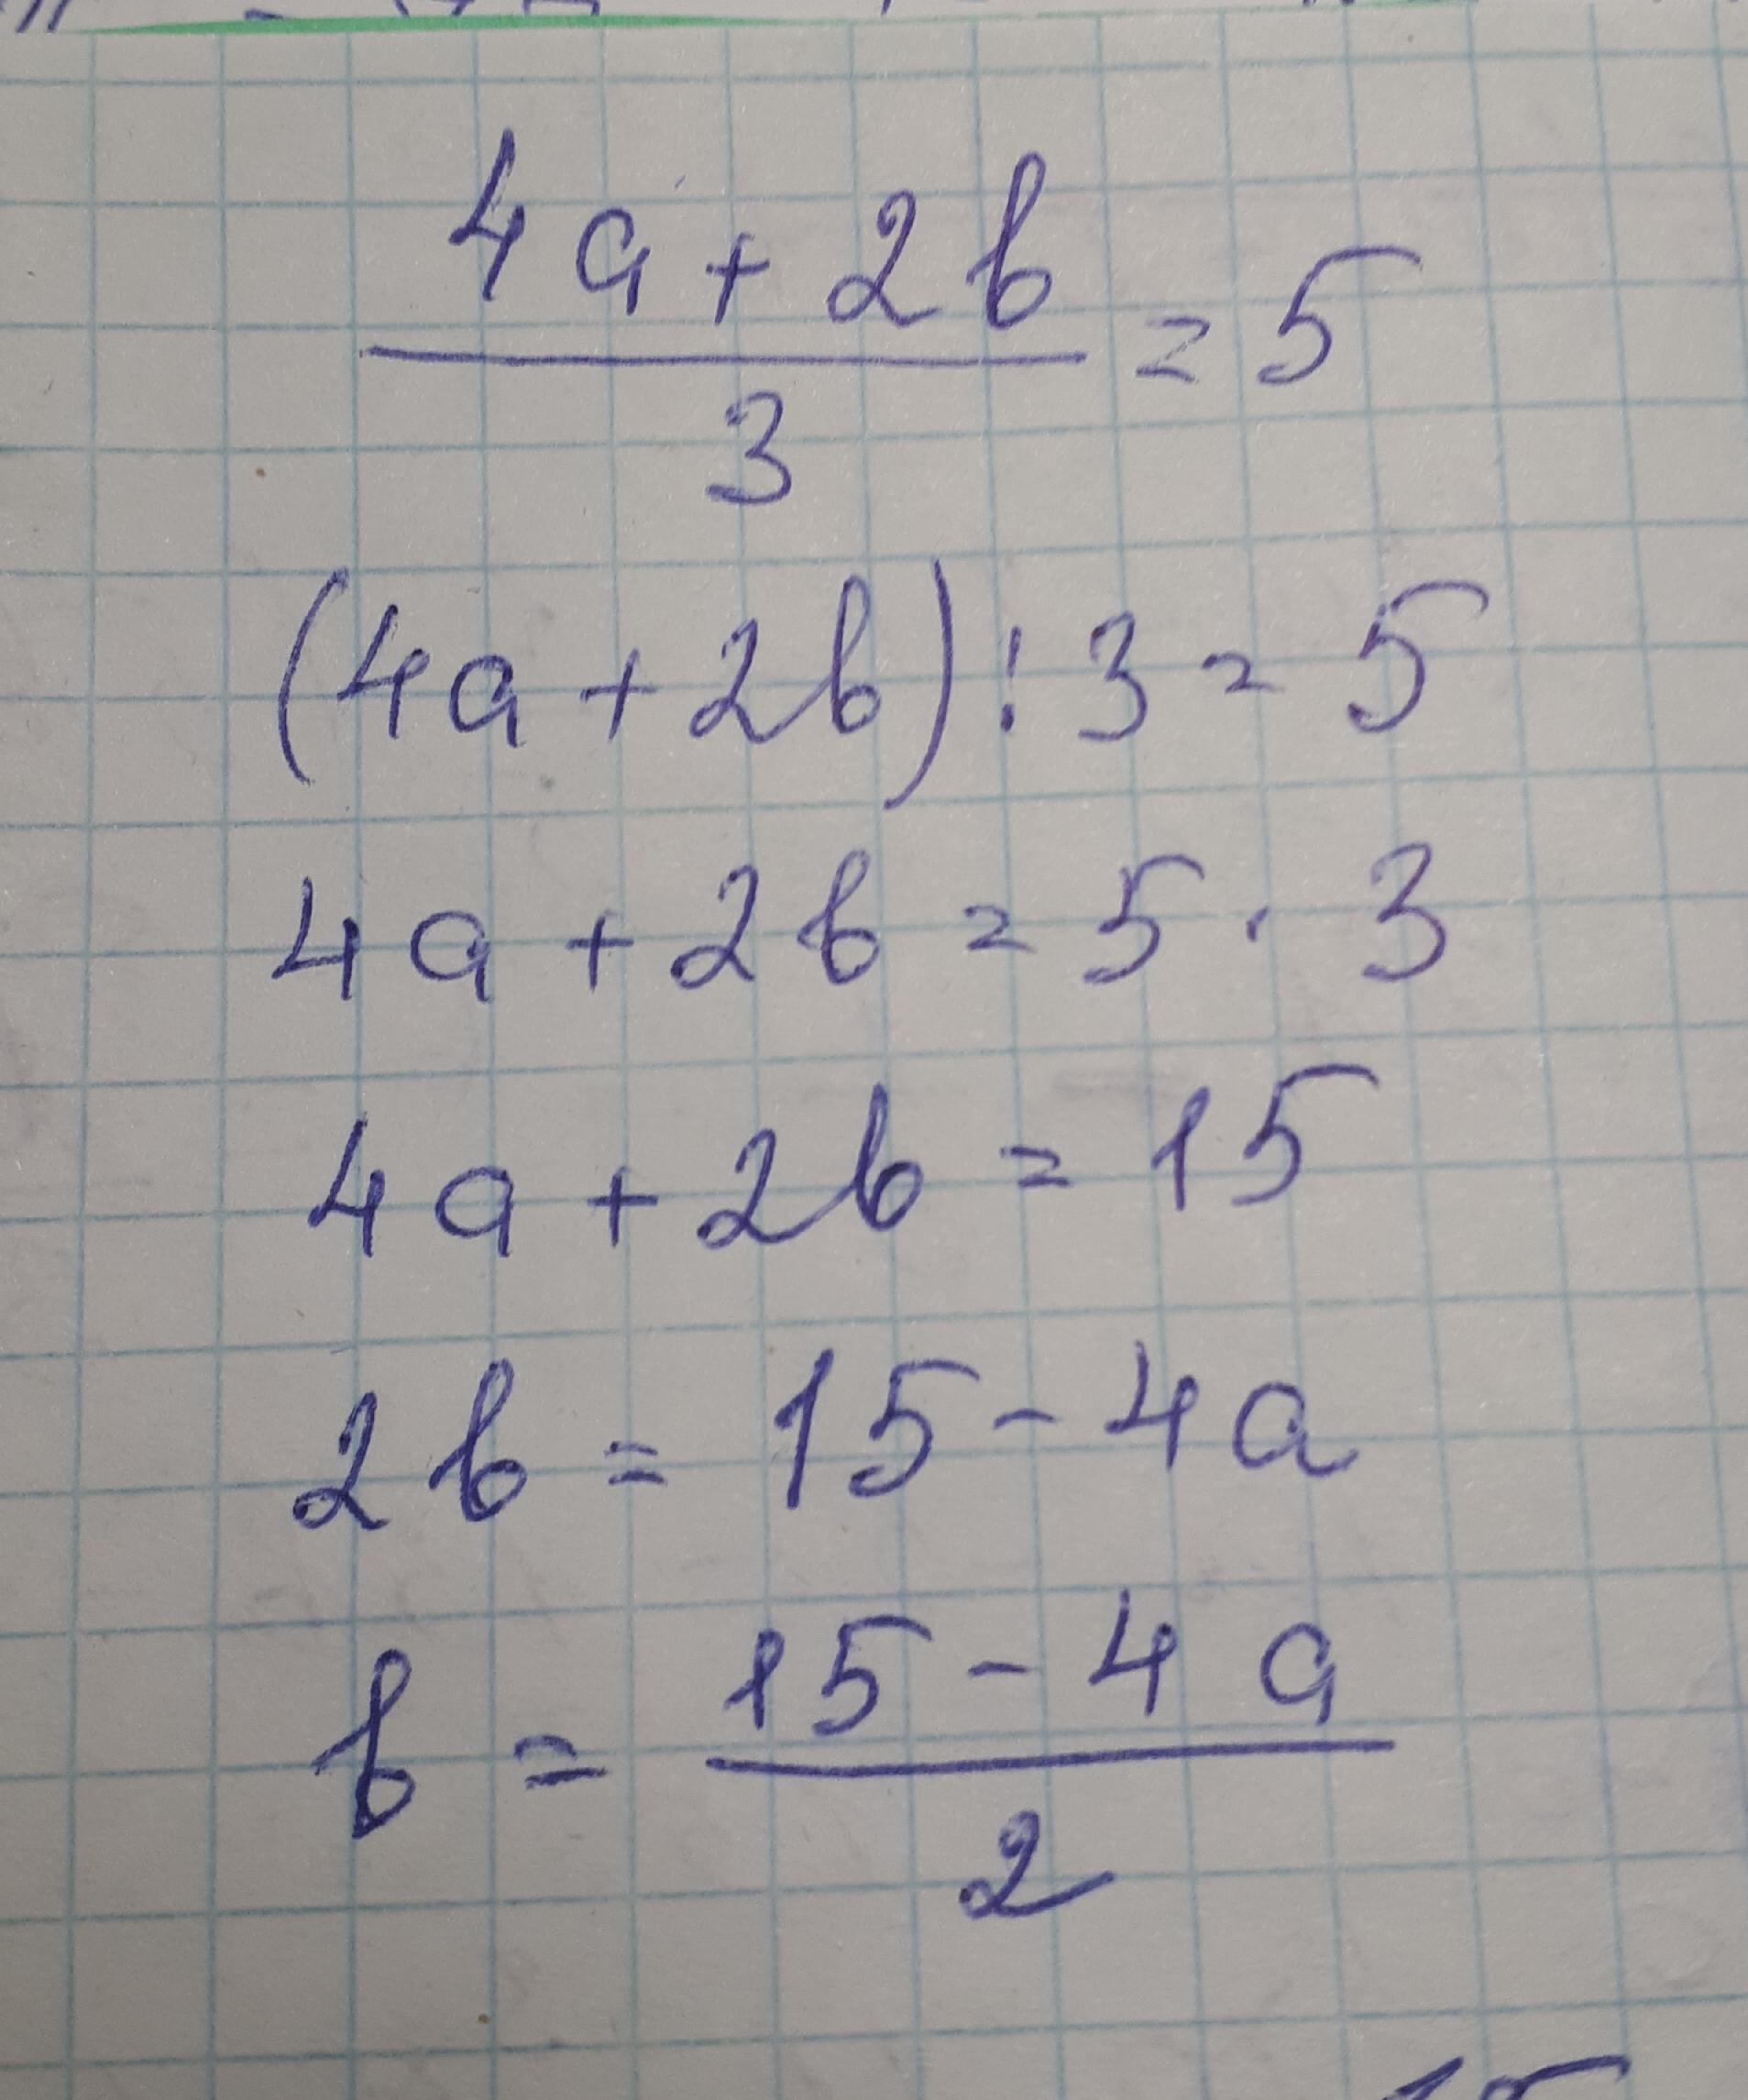 4a + 2b
─────── = 5
3
(4a + 2b) : 3 = 5
4a + 2b = 5 · 3
4a + 2b = 15
2b = 15 - 4a
b = 15 - 4a
───────
2
15